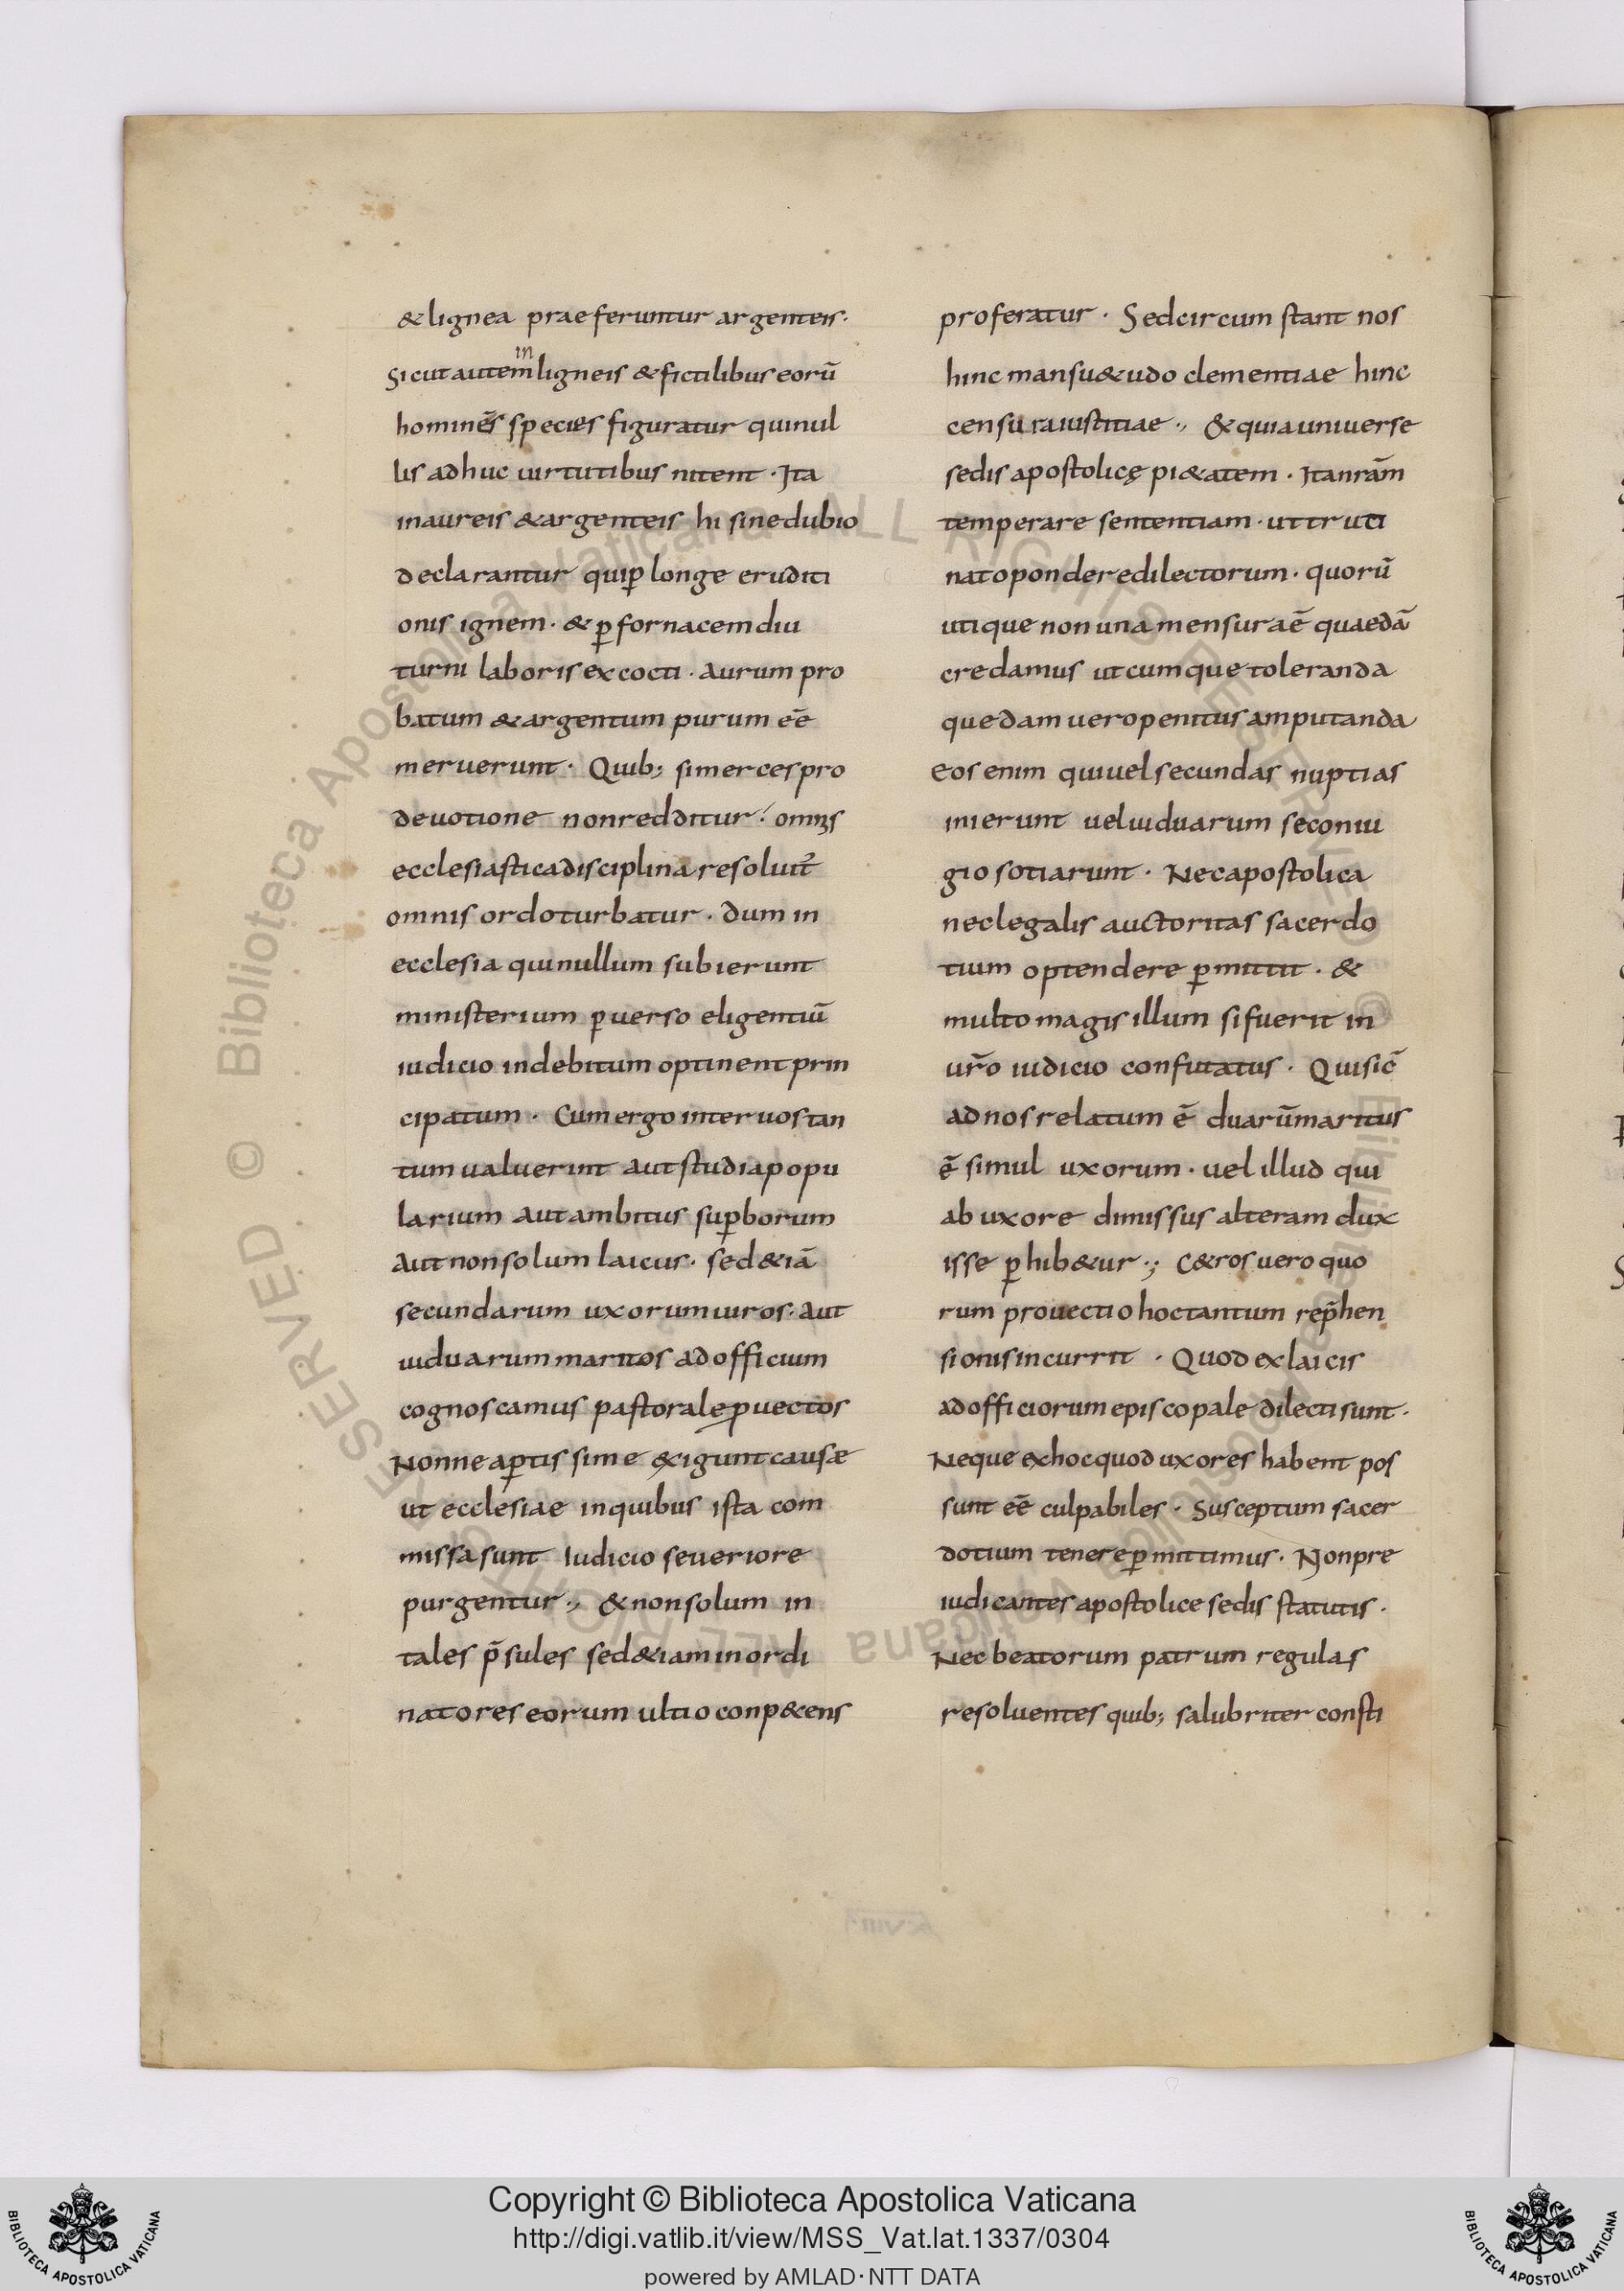 & lignea praeferuntur argenteis.
Sicut autem in ligneis & fictilibus eorū
hominēs species figuratur qui nul
lis adhuc uirtutibus nitent · Ita
in aureis & argenteis hi sine dubio
declarantur qui ꝑ longe eruditi
onis ignem · & ꝑ fornacem diu
turni laboris excocti · aurum pro
batum & argentum purum eē
meruerunt · Quib; si merces pro
deuotione non redditur · omnis
ecclesiastica disciplina resoluit̄
omnis ordo turbatur · dum in
ecclesia qui nullum subierunt
ministerium ꝑuerso eligentiū
iudicio indebitum optinent prin
cipatum · Cum ergo inter uos tan
tum ualuerint aut studia popu
larium aut ambitus suꝑborum
aut non solum laicus · sed & iā
secundarum uxorum uiros · aut
uiduarum maritos ad officium
cognoscamus pastorale ꝓuectos
Nonne aꝑtissime exigunt causæ
ut ecclesiae in quibus ista com
missa sunt Iudicio seueriore
purgentur ., & non solum in
tales p̄sules sed & iam in ordi
natores eorum ultio conp&ens
proferatur · Sed circumstant nos
hinc mansu&udo clementiae hinc
censura iustitiae ., & quia uniuerse
sedis apostolicę pi&atem · Ita nrām
temperare sententiam · ut truti
nato pondere dilectorum · quorū
utique non una mensura ē quaedā
credamus utcumque toleranda
quedam uero penitus amputanda
Eos enim qui uel secundas nuptias
inierunt uel uiduarum se coniu
gio sotiarunt · Nec apostolica
nec legalis auctoritas sacerdo
tium optendere ꝑmittit · &
multo magis illum si fuerit in
ur̄o iudicio confutatus · Qui sic̄
ad nos relatum ē duarū maritus
ē simul uxorum · uel illud qui
ab uxore dimissus alteram dux
isse ꝑhib&ur .; C&ros uero quo
rum prouectio hoc tantum rep̄hen
sionis incurrit · Quod ex laicis
ad officiorum episcopale dilecti sunt ·
Neque ex hoc quod uxores habent pos
sunt eē culpabiles · Susceptum sacer
dotium tenere ꝑmittimus · Non pre
iudicantes apostolice sedis statutis ·
Nec beatorum patrum regulas
resoluentes quib; salubriter consti
Copyright © Biblioteca Apostolica Vaticana
http://digi.vatlib.it/view/MSS_Vat.lat.1337/0304
powered by AMLAD·NTT DATA
BIBLIOTECA APOSTOLICA VATICANA
BIBLIOTECA APOSTOLICA VATICANA